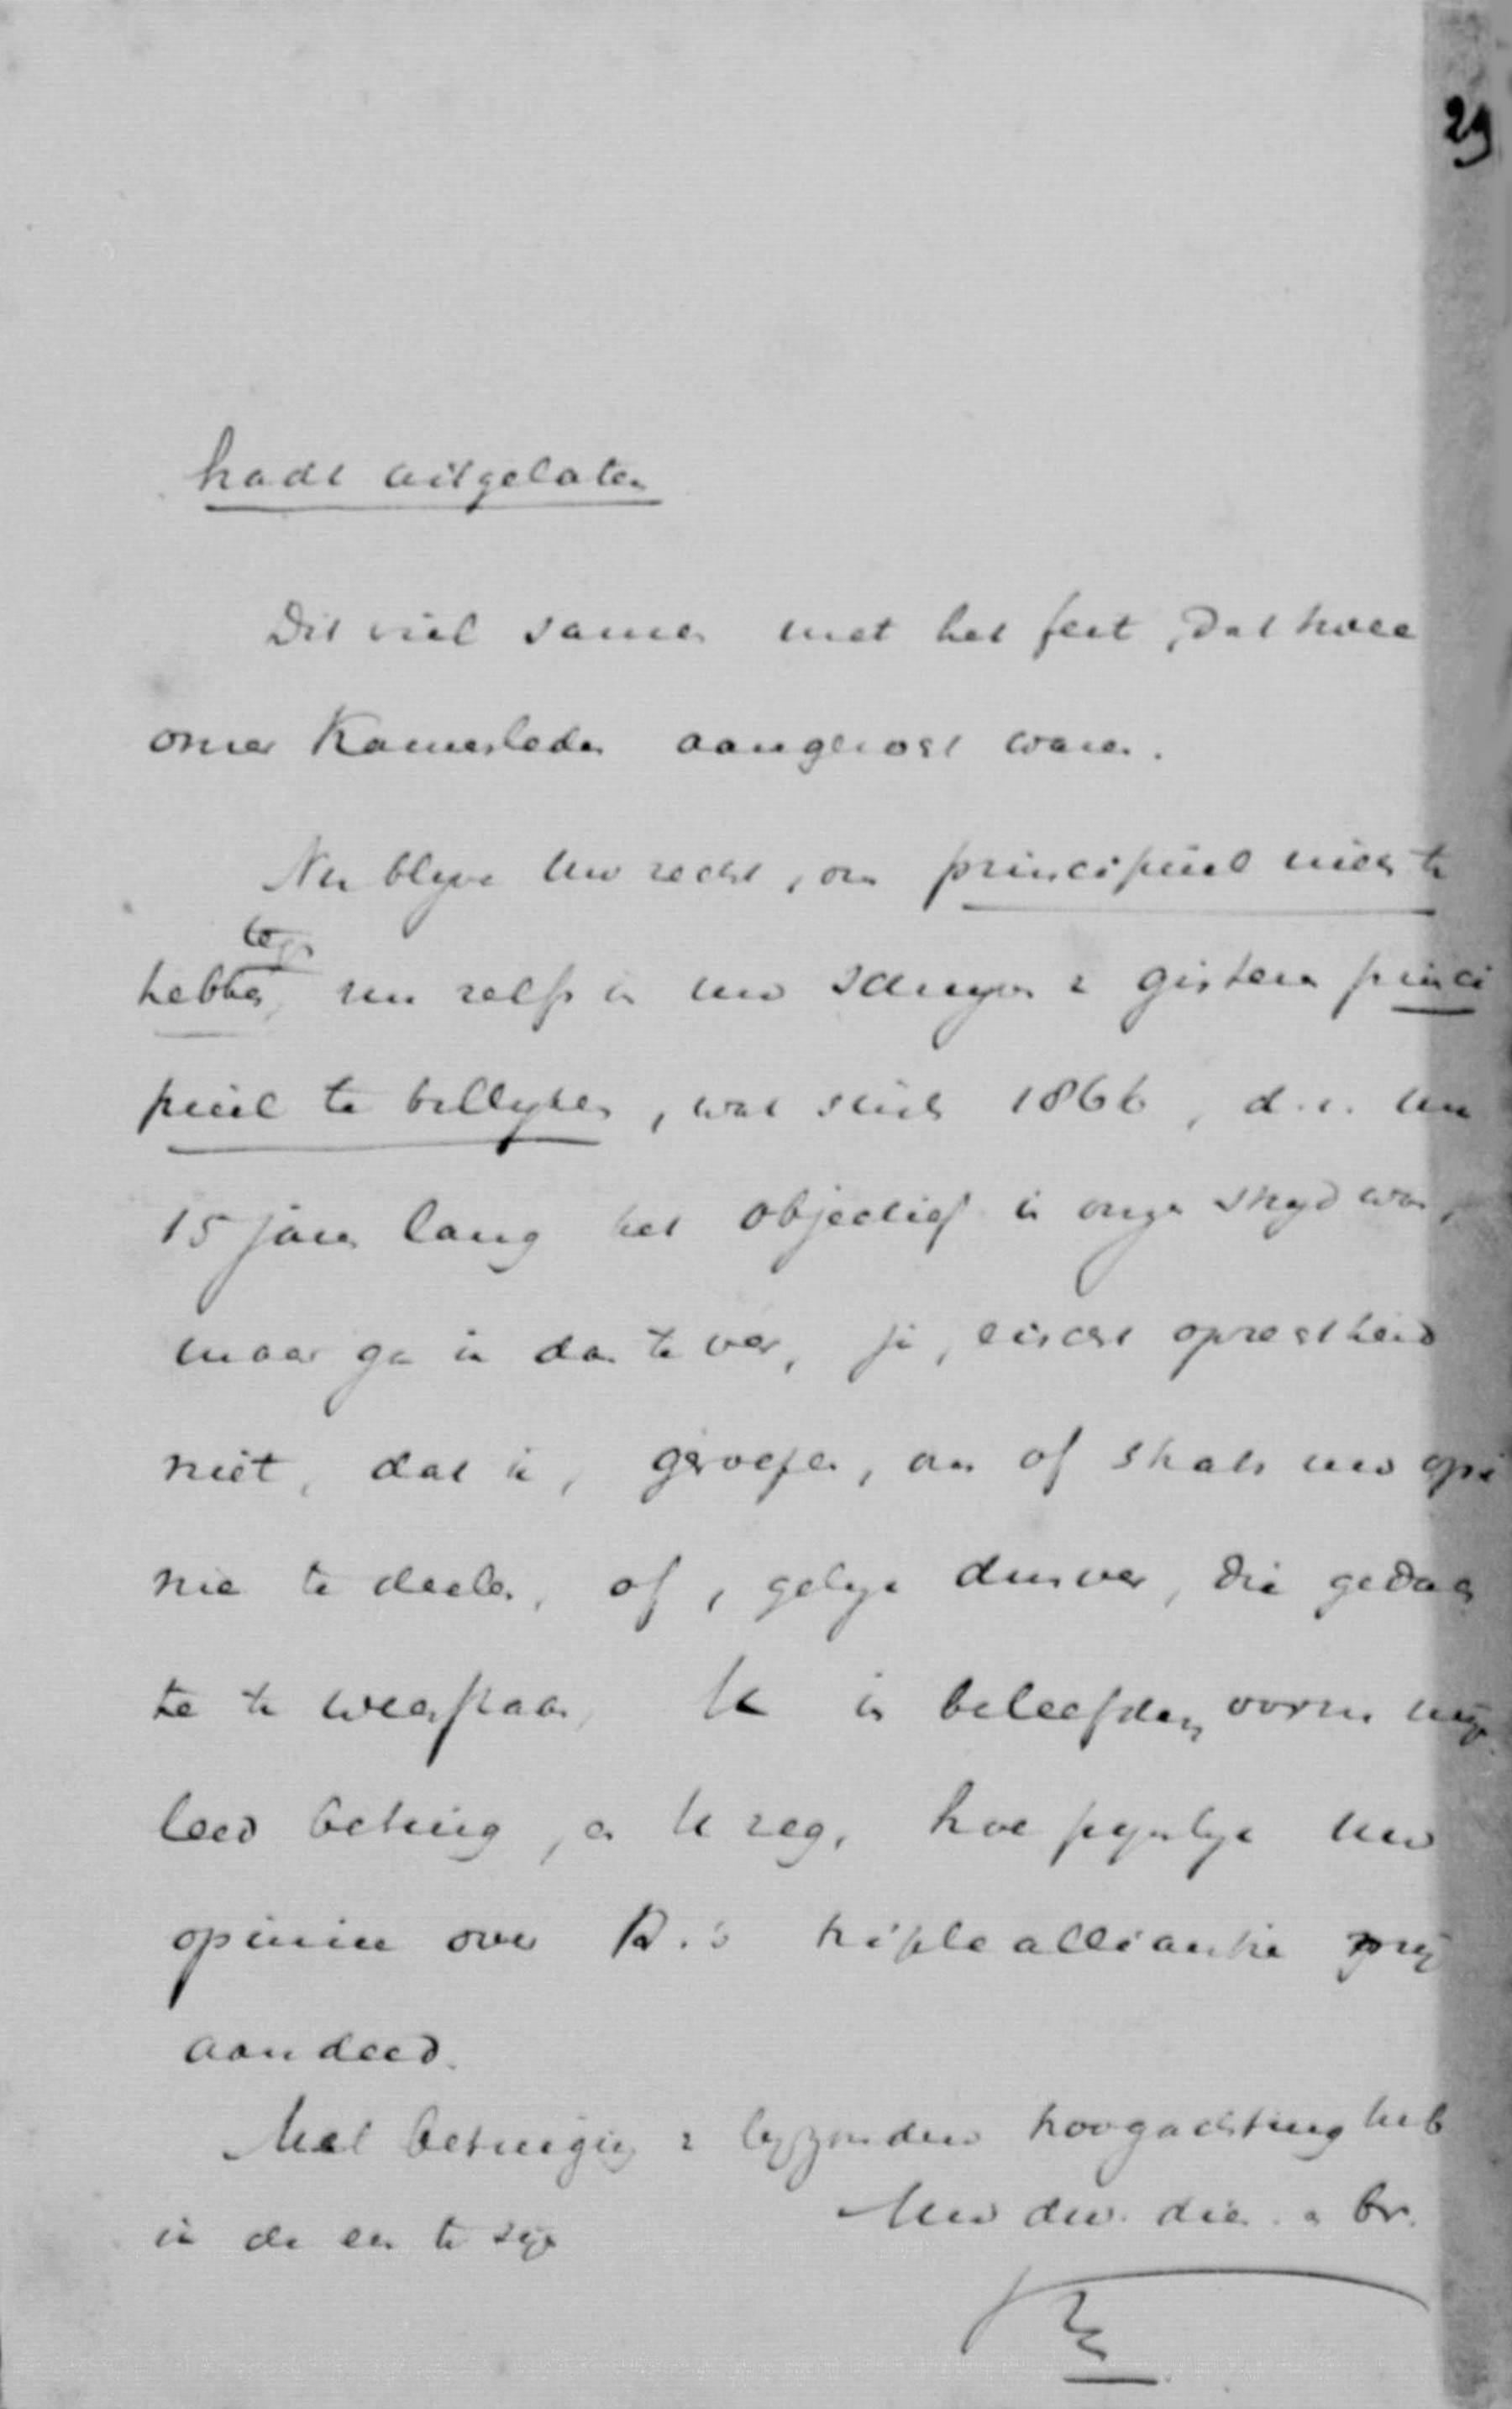 29
hadt uitgelaten
Dit viel samen met het feit, dat twee
onzer Kamerleden aangerost waren.
Nu blyve Uw recht, om principieel niets te
hebben, nu zelfs in uw schryven v gisteren princi
pieel te billyken, wat sinds 1866, d.i. nu
15 jaren lang het objectief in onze stryd was,
maar ga ik dan te ver, zoo, eischt oprechtheid
niet, dat ik, geroepen, om of straks uw opi
nie te deelen, of, gelyk dusver, die gedach
te te weerstaan, U in beleefden vorm myn
leed betuig, en U zeg, hoe pynlyk Uw
opinie over R.'s triple alliantie my
aandeed.
Met betuiging v byzondere hoogachting heb
ik de eer te zyn
Uw dw. die. en br.